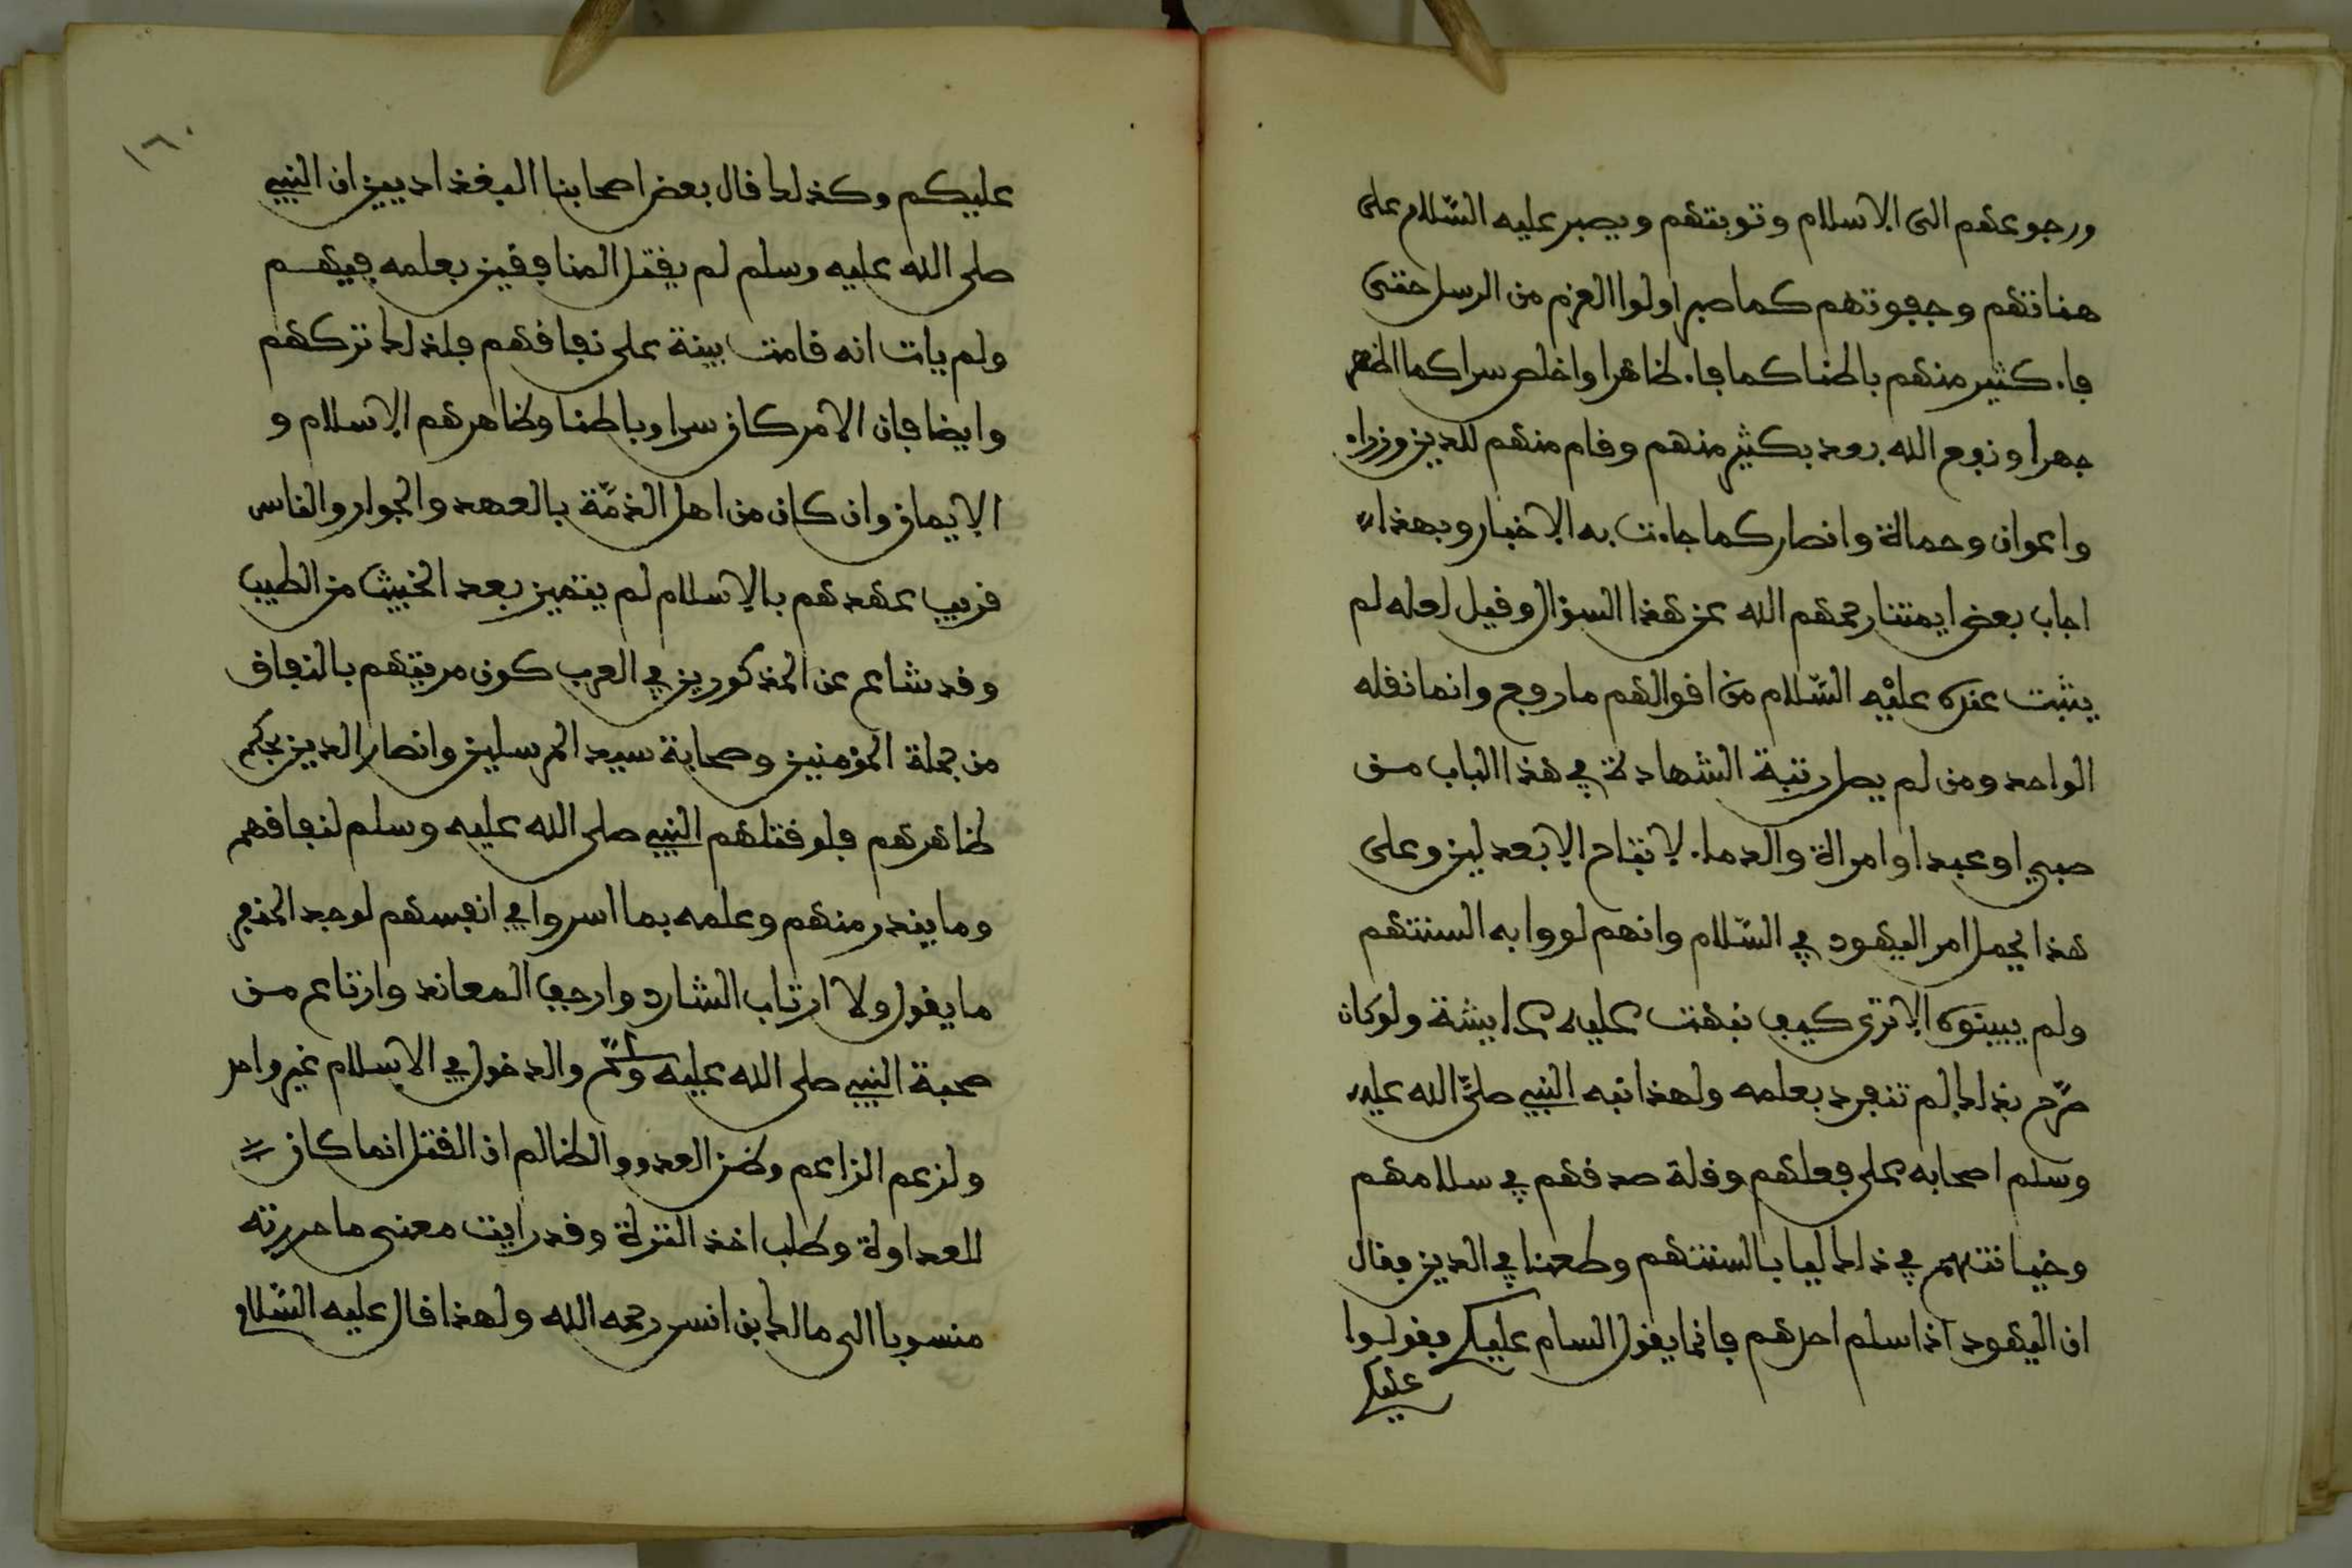 ورجوعهم الى الاسلام وتوبتهم ويصبر عليه السّلام على
هناتهم وجفوتهم كما صبر اولوا العزم من الرسل حتى
فاء كثير منهم باطنا كما فاء ظاهرا واخلص سرا كما اظهر
جهرا ونفع الله بعد بكثير منهم وقام منهم للدين وزراء
واعوان وحماة وانصار كما جاءت به الاخبار وبهذا
اجاب بعض ايمتنا رحمهم الله عن هذا السؤال وقيل لعله لم
يثبت عنده عليْه السّلام من اقوالهم ما رفع وانما نقله
الواحد ومن لم يصل رتبة الشهادة في هذا الباب من
صبي او عبد او امراة والدماء لا تستباح الا بعدلين وعلى
هذا يحمل امر اليهود في السّلام وانهم لووا به السنتهم
ولم يبينوه الا ترى كيف نبهت عليه عايشة ولو كان
صرّح بذلك لم تنفرد بعلمه ولهذا نبه النبي صلّى الله عليه
وسلم اصحابه على فعلهم وقلة صدقهم في سلامهم
وخيانتهم في ذلك ليا بالسنتهم وطعنا في الدين فقال
ان اليهود اذا سلم احدهم فانما يقول السام عليكم فقولوا
عليكم
١٦٠
عليكم وكذلك قال بعض اصحابنا البغداديين ان النبي
صلى الله عليه وسلم لم يقتل المنافقين بعلمه فيهم
ولم يات انه قامت بينة على نفاقهم فلذلك تركهم
وايضا فان الامر كان سرا وباطنا وظاهرهم الاسلام و
الايمان وان كان من اهل الذمّة بالعهد والجوار والناس
قريب عهدهم بالاسلام لم يتميز بعد الخبيث من الطيب
وقد شاع عن المذكورين في العرب كون من يتهم بالنفاق
من جملة المؤمنين وصحابة سيد المرسلين وانصار الدين بحكم
ظاهرهم فلو قتلهم النبي صلى الله عليه وسلم لنفاقهم
وما يندر منهم وعلمه بما اسروا في انفسهم لوجد المنفر
ما يقول ولا ارتاب الشارد وارجف المعاند وارتاع من
صحبة النبي صلى الله عليه وسلّم والدخول في الاسلام غير واحد
ولزعم الزاعم وظن العدو والظالم ان القتل انما كان
للعداوة وطلب اخذ الترة وقد رايت معنى ما حررته
منسوبا الى مالك بن انس رحمه الله ولهذا قال عليه السّلام